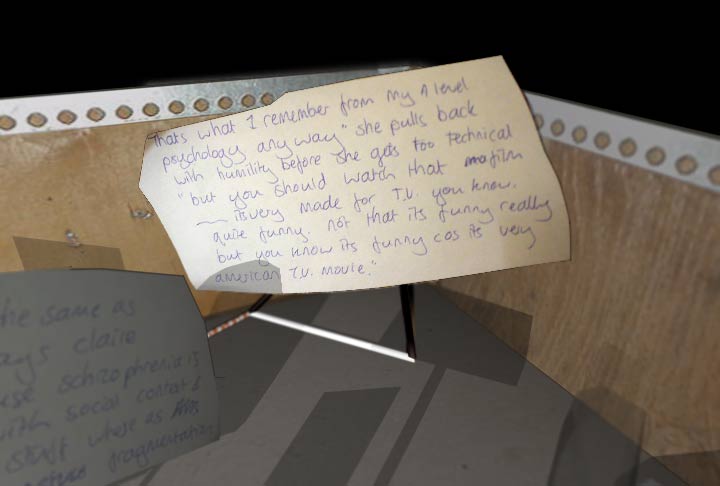 Thats what I remember from my A level
psychology anyway" she pulls back
with humility before she gets too technical
"but you should watch that film
its very made for T.V. you know.
quite funny. not that its funny really
but you know its funny cos its very
american T.V. movie."
the same as
ays claire
se schizophrenia is
with social contact &
stuff whose as this
fragmentation